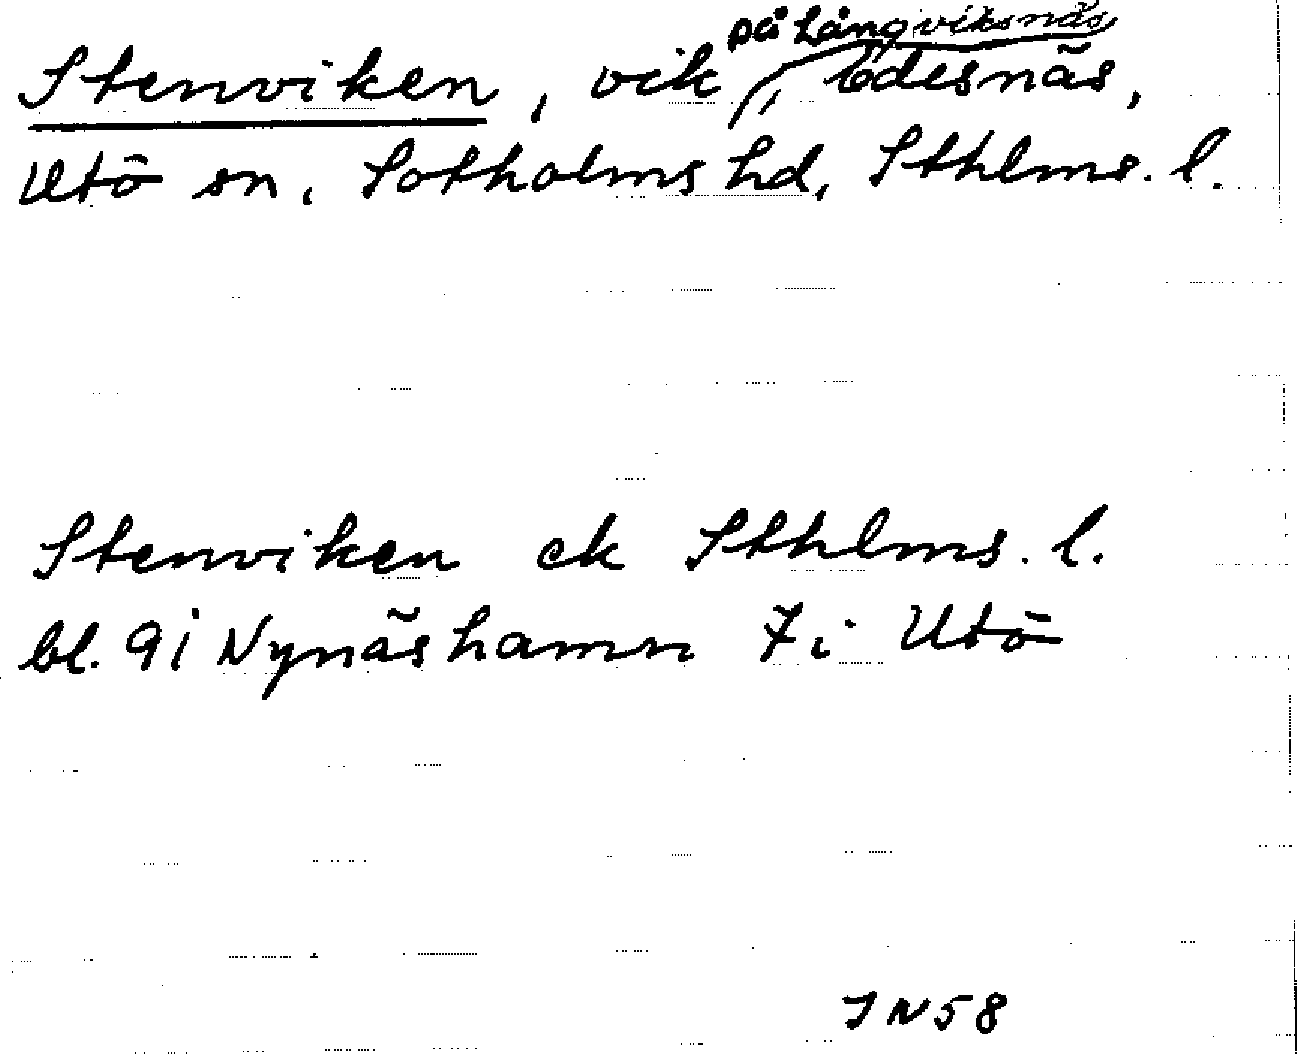 på Långviksnäs
Stenviken, vik, Edesnäs,
Utö sn, Sotholms hd, Sthlms. l.
Stenviken ek Sthlms. l.
bl. 91 Nynäshamn 7 i Utö
JN58